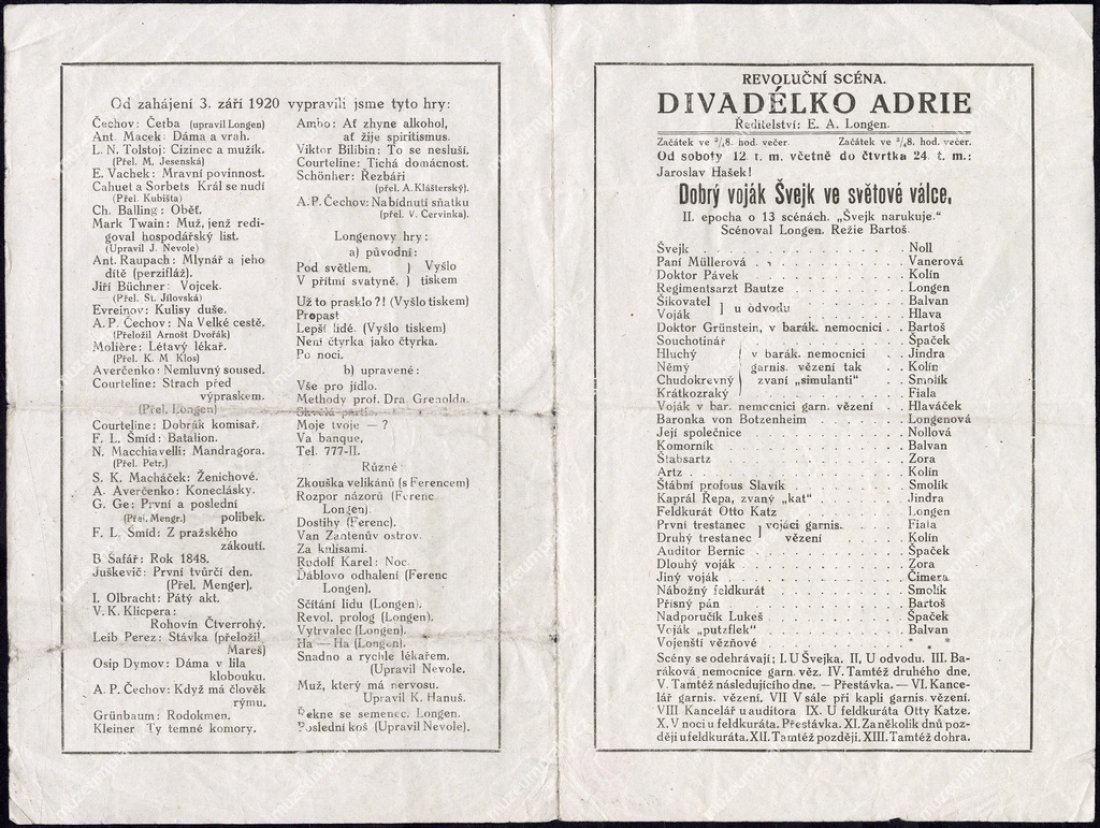 Od zahájení 3. září 1920 vypravili jsme tyto hry:
Čechov: Četba (upravil Longen)
Ant. Macek: Dáma a vrah.
L. N. Tolstoj: Cizinec a mužík.
(Přel. M. Jesenská)
E. Vachek: Mravní povinnost.
Cahuet a Sorbets Král se nudí
(Přel. Kubišta)
Ch. Balling: Oběť.
Mark Twain: Muž, jenž redi-
goval hospodářský list.
(Upravil J. Nevole)
Ant. Raupach: Mlynář a jeho
dítě (perzifláž).
Jiří Büchner: Vojcek.
(Přel. St. Jílovská)
Evreinov: Kulisy duše.
A. P. Čechov: Na Velké cestě.
(Přeložil Arnošt Dvořák)
Molière: Létavý lékař.
(Přel. K. M Klos)
Averčenko: Nemluvný soused.
Courteline: Strach před
výpraskem.
(Přel. Longen)
Courteline: Dobrák komisař.
F. L. Šmíd: Batalion.
N. Macchiavelli: Mandragora.
(Přel. Petr.)
S. K. Macháček: Ženichové.
A. Averčenko: Koneclásky.
G. Ge: První a poslední
(Přel. Mengr.) polibek.
F. L. Šmíd: Z pražského
zákoutí.
B Šafář: Rok 1848.
Juškevič: První tvůrčí den.
(Přel. Menger.)
I. Olbracht: Pátý akt.
V. K. Klicpera:
Rohovín Čtverrohý.
Leib Perez: Stávka (přeložil
Mareš)
Osip Dymov: Dáma v lila
klobouku.
A. P. Čechov: Když má člověk
rýmu.
Grünbaum: Rodokmen.
Kleiner Ty temné komory.
Ambo: Ať zhyne alkohol,
ať žije spiritismus.
Viktor Bilibin: To se nesluší.
Courteline: Tichá domácnost.
Schönher: Řezbáři
(přel. A. Klášterský).
A. P. Čechov: Nabídnutí sňatku
(přel. V. Červinka).
Longenovy hry:
a) původní:
Pod světlem. ) Vyšlo
V přítmí svatyně. ) tiskem
Už to prasklo?! (Vyšlo tiskem)
Propast
Lepší lidé. (Vyšlo tiskem)
Není čtyrka jako čtyrka.
Po noci.
b) upravené:
Vše pro jídlo.
Methody prof. Dra. Grenolda.
Skvělá partie.
Moje tvoje — ?
Va banque,
Tel. 777-II.
Různé
Zkouška velikánů (s Ferencem)
Rozpor názorů (Ferenc
Longen)
Dostihy (Ferenc).
Van Zantenův ostrov.
Za kulisami.
Rudolf Karel: Noc.
Ďáblovo odhalení (Ferenc
Longen).
Sčítání lidu (Longen).
Revol. prolog (Longen).
Vytrvalec (Longen).
Ha — Ha (Longen).
Snadno a rychle lékařem.
(Upravil Nevole.
Muž, který má nervosu.
Upravil K. Hanuš.
Řekne se semenec. Longen.
Poslední koš (Upravil Nevole).
REVOLUČNÍ SCÉNA.
DIVADÉLKO ADRIE
Ředitelství: E. A. Longen.
Začátek ve ³/₄8. hod. večer. Začátek ve ³/₄8. hod. večer.
Od soboty 12 t. m. včetně do čtvrtka 24 t. m.:
Jaroslav Hašek!
Dobrý voják Švejk ve světové válce,
II. epocha o 13 scénách. „Švejk narukuje.“
Scénoval Longen. Režie Bartoš
Švejk . . . Noll
Paní Müllerová . . . Vanerová
Doktor Pávek . . . Kolín
Regimentsarzt Bautze . . . Longen
Šikovatel ] u odvodu . . . Balvan
Voják ] u odvodu . . . Hlava
Doktor Grünstein, v barák. nemocnici . . Bartoš
Souchotinář . . . Špaček
Hluchý ( v barák. nemocnici . . Jindra
Němý garnis. vězení tak . . Kolín
Chudokrevný zvaní „simulanti“ . . Smolík
Krátkozraký . . . Fiala
Voják v bar. nemocnici garn. vězení . . Hlaváček
Baronka von Botzenheim . . . Longenová
Její společnice . . . Nollová
Komorník . . . Balvan
Štabsartz . . . Zora
Artz . . . Kolín
Štábní profous Slavík . . . Smolík
Kaprál Řepa, zvaný „kat“ . . . Jindra
Feldkurát Otto Katz . . . Longen
První trestanec ] vojáci garnis. . . . Fiala
Druhý trestanec ] vězení . . . Kolín
Auditor Bernic . . . Špaček
Dlouhý voják . . . Zora
Jiný voják . . . Čimera
Nábožný feldkurát . . . Smolík
Přísný pán . . . Bartoš
Nadporučík Lukeš . . . Špaček
Voják „putzflek“ . . . Balvan
Vojenští vězňové . . . * *
Scény se odehrávají: I. U Švejka. II, U odvodu. III. Ba-
ráková nemocnice garn. věz. IV. Tamtéž druhého dne,
V. Tamtéž následujícího dne. — Přestávka. — VI. Kance-
lář garnis. vězení. VII V sále při kapli garnis. vězení.
VIII Kancelář u auditora IX. U feldkuráta Otty Katze.
X. V noci u feldkuráta. Přestávka. XI. Za několik dnů poz-
ději u feldkuráta. XII. Tamtéž později. XIII. Tamtéž dohra.